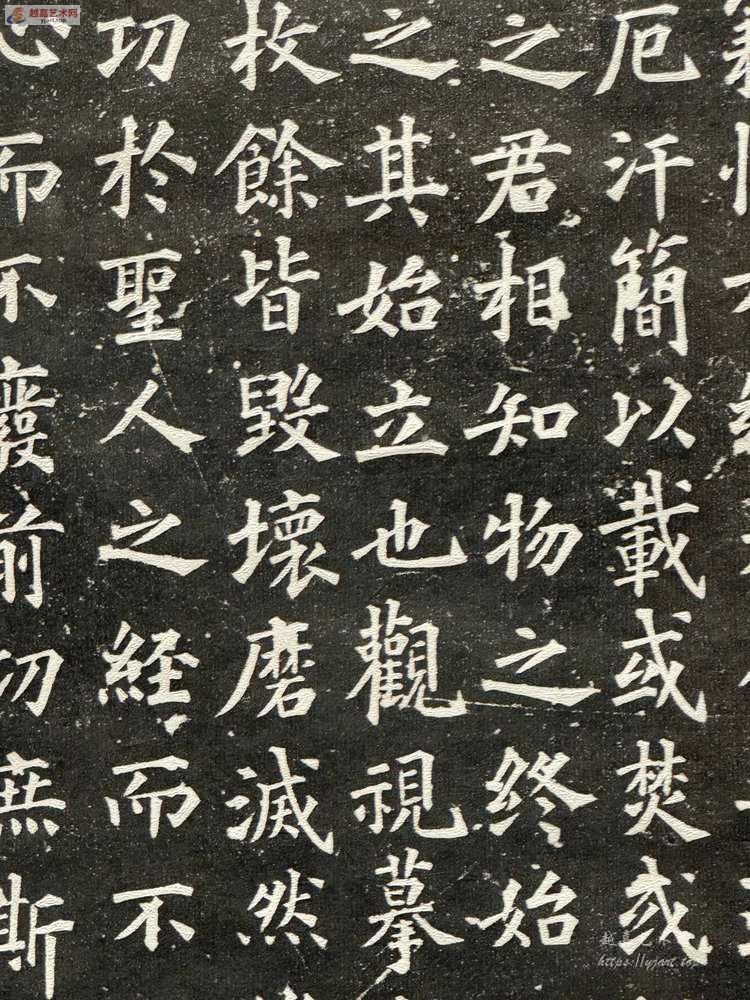 厄汗簡以載或焚或
之君相知物之終始
之其始立也觀視摹
枚餘皆毀壞磨滅然
功於聖人之経而不
心而不廢前功庶斯
越嘉艺术网
yjart.top
越嘉艺术
https://yjart.top